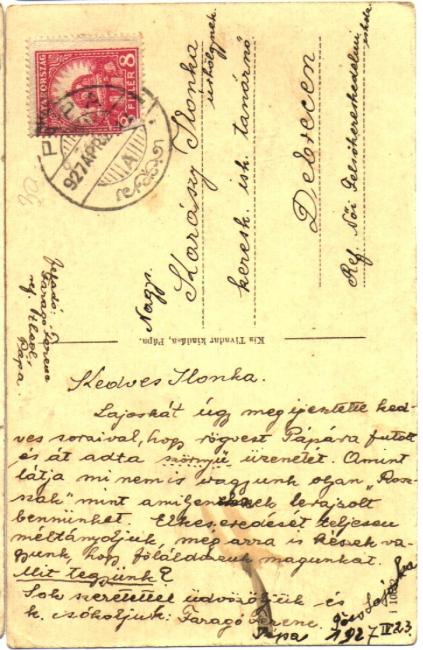 MAGYARORSZÁG
8 FILLÉR 8
PÁPA
927 APR
Nagys.
Skarászy Ilonka
úrhölgynek
keresk. isk. tanárnő
Debrecen
Ref. Női Felsőkereskedelmi
iskola
Feladó:
Faragó Ferenc
ref.
Pápa.
Kis Tivadar kiadása, Pápa.
Kedves Ilonka.
Lajoskát úgy megijentette ked-
ves soraival, hogy rögvest Pápára futott
és át adta szörnyű üzenetét. Amint
látja mi nem is vagyunk olyan „Rosz-
szak” mint amilyeneknek lerajzolt
bennünket. Elkeseredését teljesen
méltányoljuk, még arra is készek va-
gyunk, hogy föláldozzuk magunkat.
Mit tegyünk?
Sok szeretettel üdvözöljük és
k. csókoljuk: Faragó Ferenc.
Pápa 1927 IV 23.